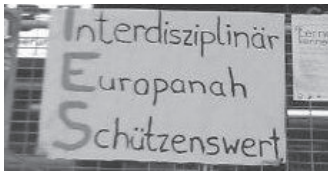 Interdisziplinär
Europanah
Schützenswert